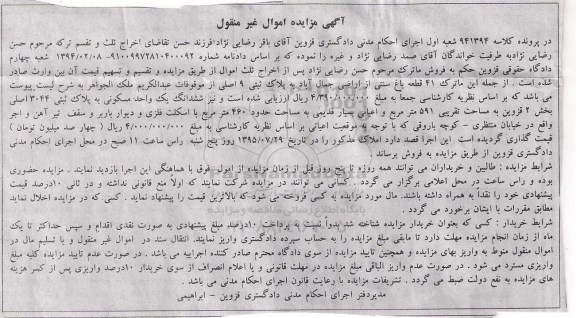 آگهی مزایده اموال غیر منقول
در پرونده کلاسه ۹۴۱۳۹۴ شعبه اول اجرای احکام مدنی دادگستری قزوین آقای باقر رضایی نژاد فرزند حسن تقاضای اخراج ثلث و تقسم ترکه مرحوم حسن
رضایی نژاد به طرفیت خواندگان آقای صمد رضایی نژاد و غیره را نموده که بر اساس دادنامه شماره ۹۱۰۰۹۹۷۲۸۱۰۴۰۰۰۹۲- ۱۳۹۴/۰۲/۰۸ شعبه چهارم
دادگاه حقوقی قزوین حکم به فروش ماترک مرحوم حسن رضایی نژاد پس از اخراج ثلث اموال از طریق مزایده و تقسیم و تسهیم قیمت آن بین وراث صادر
شده است . از جمله این ماترک ۴۱ قطعه باغ سنتی از اراضی جمال آباد به پلاک ثبتی ۹ اصلی از موقوفات عبدالکریم ملک الجواهر به شرح لیست پیوست
می باشد که بر اساس نظریه کارشناسی جمعا به مبلغ ریال ارزیابی شده است و نیز ششدانگ یک واحد مسکونی به پلاک ثبتی ۳۰۴۴ اصلی
بخش ۲ قزوین به مساحت تقریبی ۵۹۱ متر مربع و اعیانی بسیار قدیمی به مساحت حدود ۴۶۰ متر مربع با اسکلت فلزی و دیوار باربر و سقف تیر آهن و اجر
واقع در خیابان منتظری - کوچه باروقی که با توجه به موقعیت اعیانی بر اساس نظریه کارشناسی به مبلغ ۴/۰۰۰/۰۰۰/۰۰۰ ریال ( چهار صد میلیون تومان )
قیمت گذاری گردیده است این اجرا قصد دارد املاک مذکور را در تاریخ ۱۳۹۵/۰۷/۲۹ روز پنج شنبه راس ساعت ۱۱ صبح در محل اجرای احکام مدنی
دادگستری قزوین از طریق مزایده به فروش برساند
شرایط مزایده : طالبین و خریداران می توانند همه روزه تا پنج روز قبل از زمان مزایده از اموال فوق با هماهنگی این اجرا بازدید نمایند . مزایده حضوری
بوده و راس ساعت در محل اعلامی برگزار می گردد . کسانی می توانند در مزایده شرکت نمایند که اولا منع قانونی نداشته و در ثانی ۱۰درصد قیمت
پیشنهادی خود را نقداً به همراه داشته باشند. مال مورد مزایده به کسی فروخته می شود که بالاترین قیمت را پیشنهاد نماید . کسی که در مزایده اخلال نماید
مطابق مقررات با ایشان برخورد می گردد .
شرایط خریدار : کسی که بعنوان خریدار مزایده شناخته شد بدواً نسبت به پرداخت ۱۰درصد مبلغ پیشنهادی به صورت نقدی اقدام و سپس حداکثر تا یک
ماه از زمان انجام مزایده مهلت دارد تا مابقی مبلغ مزایده را به حساب سپرده دادگستری واریز نمایند. انتقال سند در اموال غیر منقول و یا تسلیم مال در
اموال منقول منوط به واریز بهای مزایده و همچنین تایید مزایده از سوی دادگاه محترم صادر کننده اجراییه می باشد . در صورت عدم تایید مزایده کلیه مبلغ
واریزی مسترد می شود . در صورت عدم واریز الباقی مبلغ مزایده در مهلت قانونی و یا اعلام انصراف از سوی خریدار ۱۰درصد واریزی پس از کسر هزینه
های مزایده به نفع دولت ضبط می گردد . تشریفات مزایده با رعایت قانون اجرای احکام مدنی می باشد .
مدیردفتر اجرای احکام مدنی دادگستری قزوین - ابراهیمی